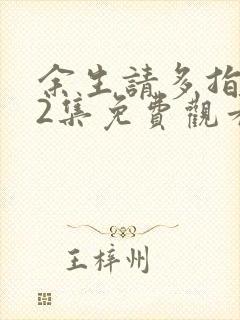 余生請多指
2集免費觀看
王梓州